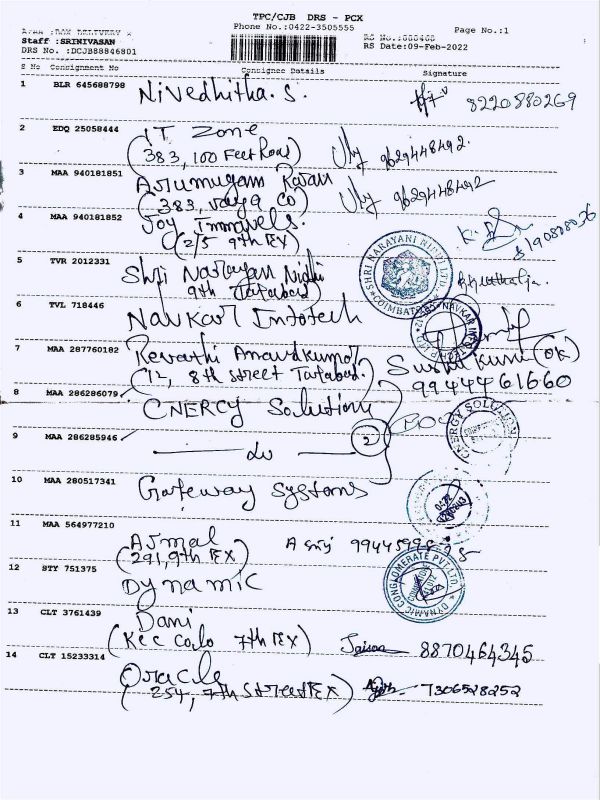 TPC/CJB DRS - PCX
Phone No.:0422-3505555
Page No.:1
Staff :SRINIVASAN
RS Date:09-Feb-2022
DRS No. :DCJB88846801
S No Consignment No Consignee Details Signature
1 BLR 645688798 Nivedhitha. S. 8220880269
2 EDQ 25058444 IT Zone
(383, 100 Feet Road) 9629448492.
3 MAA 940181851 Arumugam
(383, 9629448492
4 MAA 940181852 Joy
(2/5 9th EX)
5 TVR 2012331 Shri Narayani Nidhi
9th (Tatabad)
SHRI NARAYANI NIDHI LTD.
COIMBATORE
6 TVL 718446 Navkar Infotech
7 MAA 287760182 Revathi Anandkumar
(12, 8th street Tatabad.
9944461660
8 MAA 286286079 CNERGY Solutions
2
CNERGY SOLUTION
9 MAA 286285946 do
10 MAA 280517341 Gateway Systems
11 MAA 564977210 Ajmal
(291, 9th EX)
12 STY 751375 Dynamic
DYNAMIC CONGLOMERATE PVT.LTD.
13 CLT 3761439 Dani
7th EX) Jaison 8870464345
14 CLT 15233314 Oracle
(254, 7th Street EX) 7306528252